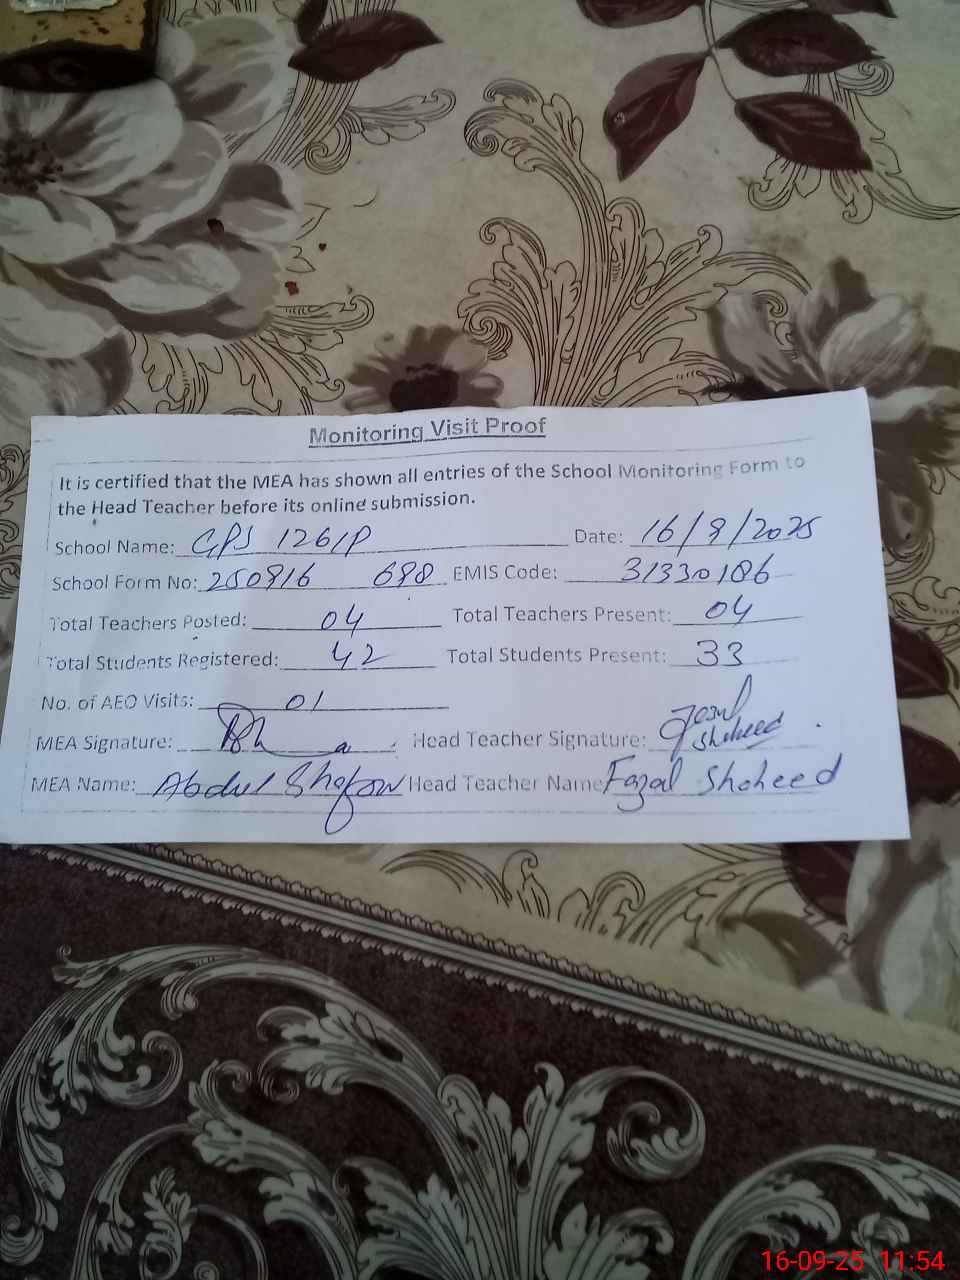 Monitoring Visit Proof
It is certified that the MEA has shown all entries of the School Monitoring Form to
the Head Teacher before its online submission.
School Name: GPS 126/P Date: 16/9/2025
School Form No: 250916 698 EMIS Code: 31330186
Total Teachers Posted: 04 Total Teachers Present: 04
Total Students Registered: 42 Total Students Present: 33
No. of AEO Visits: 01
MEA Signature: Head Teacher Signature: Fazal Shaheed
MEA Name: Abdul Shafow Head Teacher Name Fazal Shaheed
16-09-25 11:54